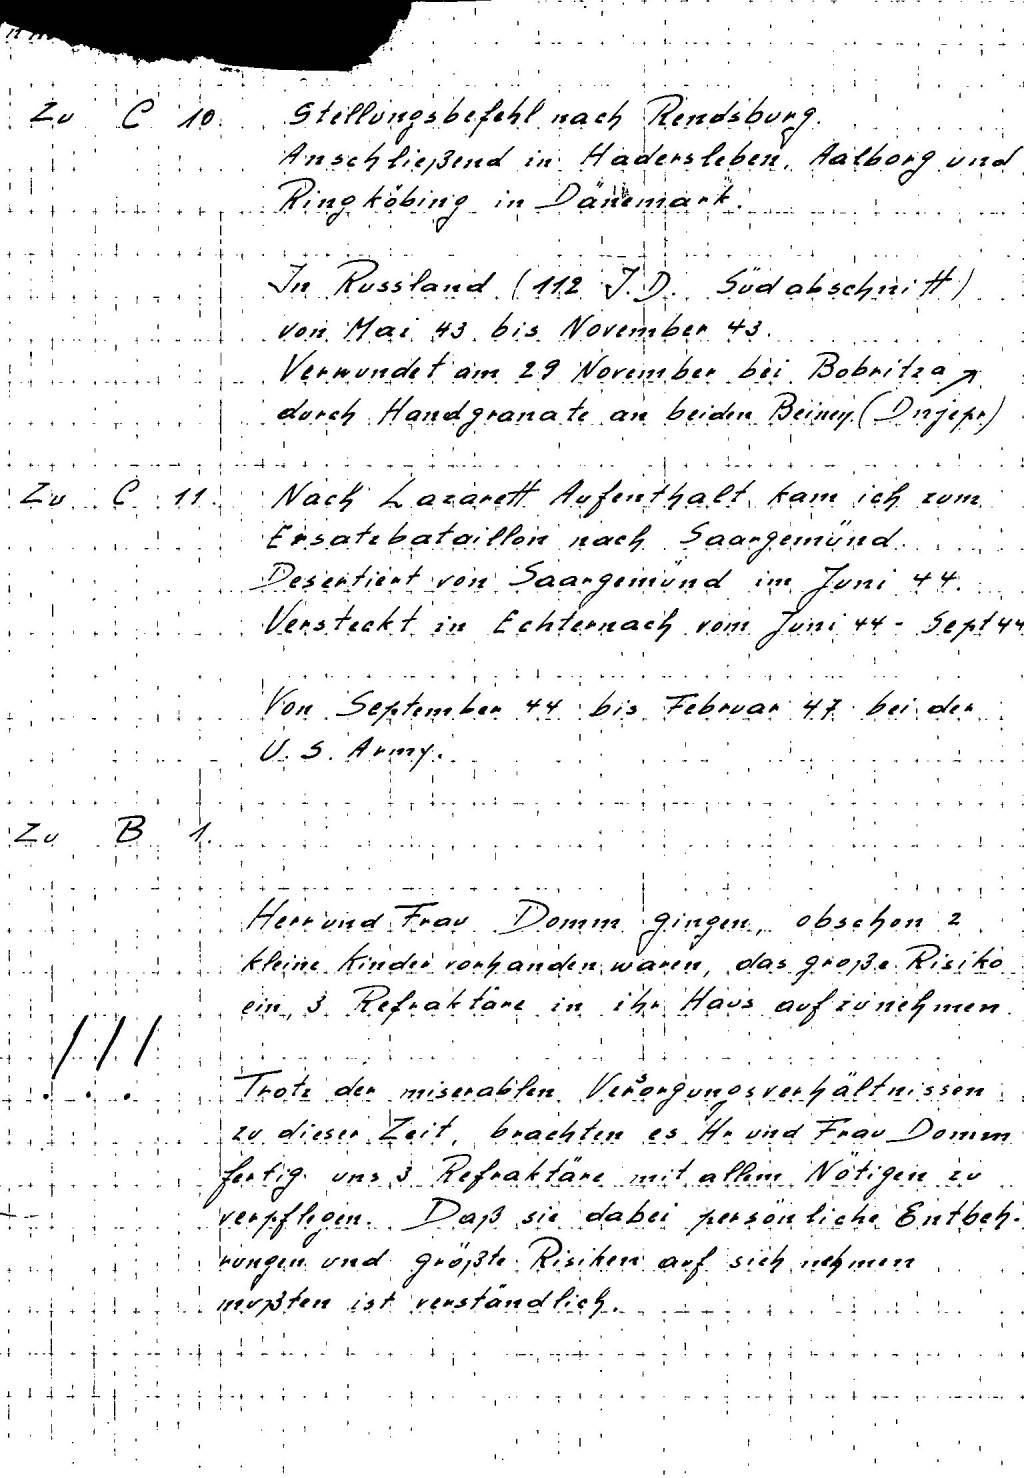 Zu C 10. Stellungsbefehl nach Rendsburg.
Anschließend in Hadersleben, Aalborg und
Ringköbing in Dänemark.
In Russland (112 J.D. Südabschnitt)
von Mai 43 bis November 43.
Verwundet am 29 November bei Bobritza
durch Handgranate an beiden Beinen. (Dnjepr)
Zu C 11. Nach Lazarett Aufenthalt kam ich zum
Ersatzbataillon nach Saargemünd.
Desertiert von Saargemünd im Juni 44.
Versteckt in Echternach vom Juni 44 - Sept 44
Von September 44 bis Februar 47 bei der
U. S. Army.
Zu B 1.
Herr und Frau Domm gingen, obschon 2
kleine Kinder vorhanden waren, das große Risiko
ein, 3 Refraktäre in ihr Haus aufzunehmen.
Trotz der miserablen Versorgungsverhältnissen
zu dieser Zeit, brachten es Hr und Frau Domm
fertig uns 3 Refraktäre mit allem Nötigen zu
verpflegen. Daß sie dabei persönliche Entbeh-
rungen und größte Risiken auf sich nehmen
mußten ist verständlich.